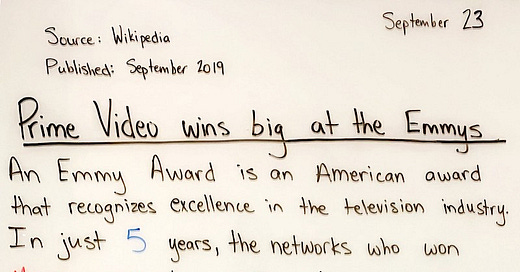 September 23
Source: Wikipedia
Published: September 2019
Prime Video wins big at the Emmys
An Emmy Award is an American award
that recognizes excellence in the television industry.
In just 5 years, the networks who won